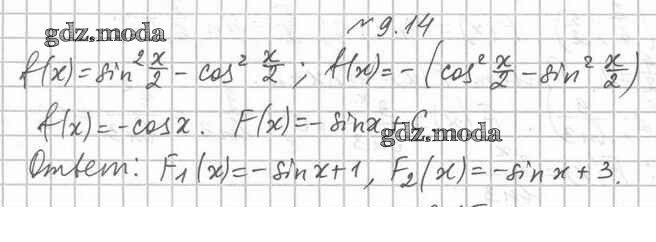 № 9.14
gdz.moda
f(x)=sin² x/2 - cos² x/2; f(x)=-(cos² x/2 - sin² x/2)
f(x)=-cosx. F(x)=-sinx+C
gdz.moda
Ответ: F₁(x)=-sinx+1, F₂(x)=-sinx+3.